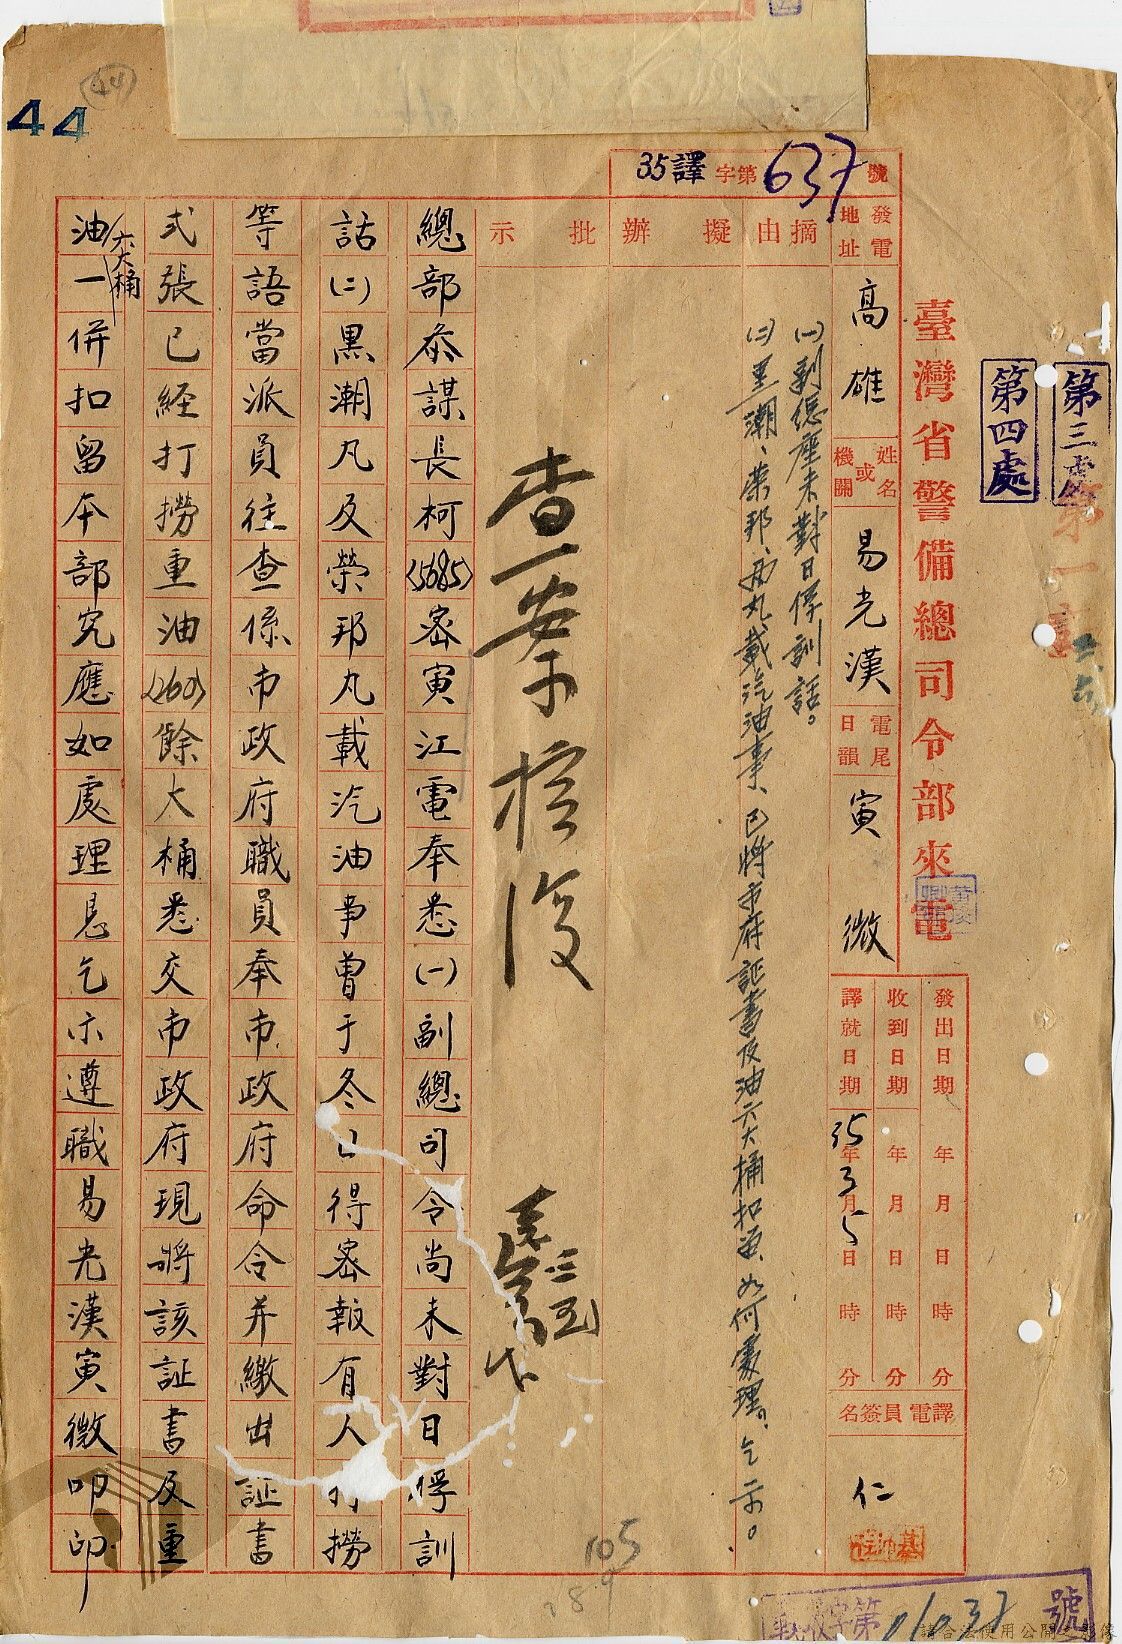 44
44
35譯字第637號
第三處
第四處
臺灣省警備總司令部來電
發電地址
高雄
姓名或機關
易光漢
電尾日韻
寅微
發出日期 年 月 日 時 分
收到日期 年 月 日 時 分
譯就日期 35年3月5日 時 分
譯電員簽名
仁
摘由
(一)副總座未對日俘訓話。
(二)黑潮、榮邦、兩丸載汽油事、已將市府証書及油六大桶扣留、如何處理。乞示。
擬辦
批示
查案核復
總部參謀長柯(5685)密寅江電奉悉(一)副總司令尚未對日俘訓
話(二)黑潮丸及榮邦丸載汽油事曾于冬日得密報有人打撈
等語當派員往查係市政府職員奉市政府命令并繳出証書
式張已經打撈重油(260)餘大桶悉交市政府現將該証書及重
油六大桶一併扣留本部究應如處理懇乞示遵職易光漢寅微叩印
105
字第01037號
請合法使用公開之影像